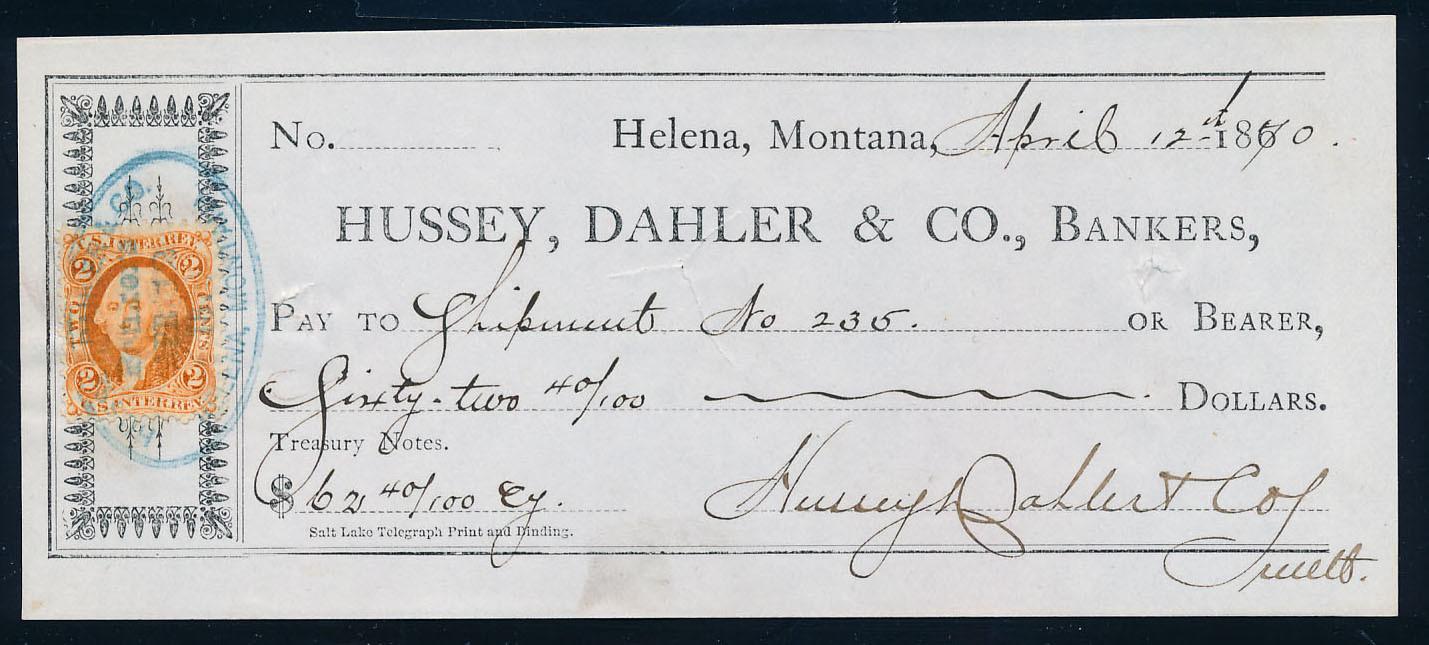 No.
Helena, Montana, April 12th 1870.
HUSSEY, DAHLER & CO., BANKERS,
PAY TO Shipment No 235. OR BEARER,
Sixty-two 40/100 DOLLARS.
Treasury Notes.
$62 40/100 Cy.
Hussey Dahler & Co
Salt Lake Telegraph Print and Binding.
U.S. INTER. REV.
2 2
TWO CENTS
2 2
U.S. INTER. REV.